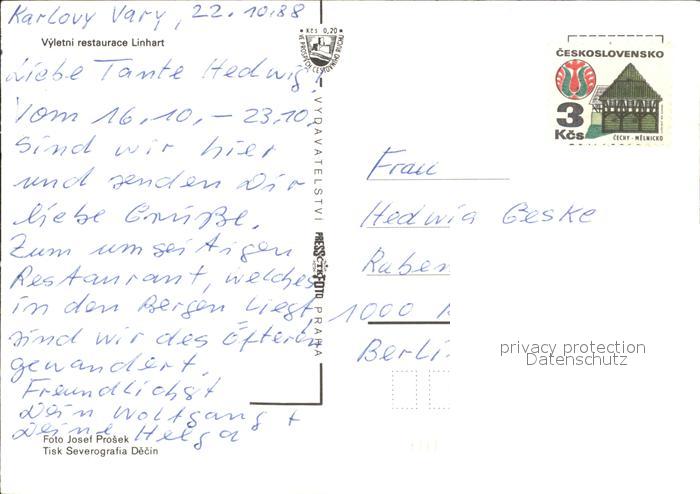 Karlovy Vary, 22.10.88
Výletní restaurace Linhart
Liebe Tante Hedwig,
Vom 16.10. – 23.10.
sind wir hier
und senden Dir
liebe Grüße.
Zum umseitigen
Restaurant, welches
in den Bergen liegt,
sind wir des Öfteren
gewandert.
Freundlichst
Dein Wolfgang +
Deine Helga
Foto Josef Prošek
Tisk Severografia Děčín
Kčs 0,20
VE PROSPĚCH CESTOVNÍHO RUCHU
VYDAVATELSTVÍ PRESSFOTO PRAHA
ČTK
ČESKOSLOVENSKO
3
Kčs
ČECHY - MĚLNICKO
Frau
Hedwig Geske
Ruben
1000
Berli
privacy protection
Datenschutz